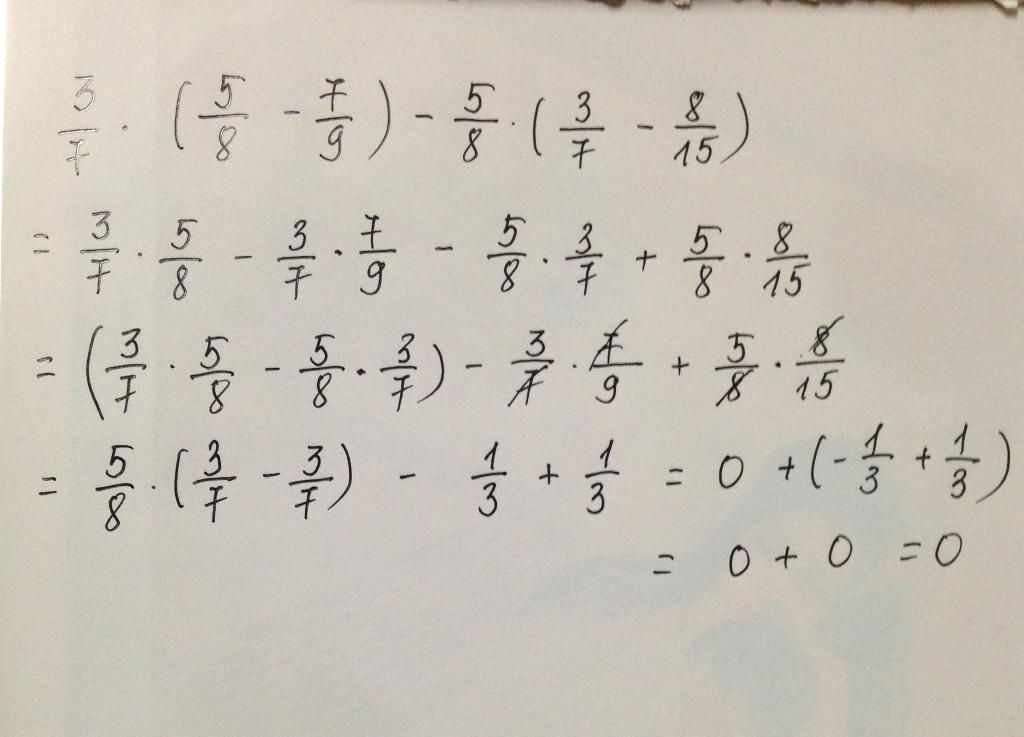 3/7 · (5/8 - 7/9) - 5/8 · (3/7 - 8/15)
= 3/7 · 5/8 - 3/7 · 7/9 - 5/8 · 3/7 + 5/8 · 8/15
= (3/7 · 5/8 - 5/8 · 3/7) - 3/7 · 7/9 + 5/8 · 8/15
= 5/8 · (3/7 - 3/7) - 1/3 + 1/3 = 0 + (- 1/3 + 1/3)
= 0 + 0 = 0